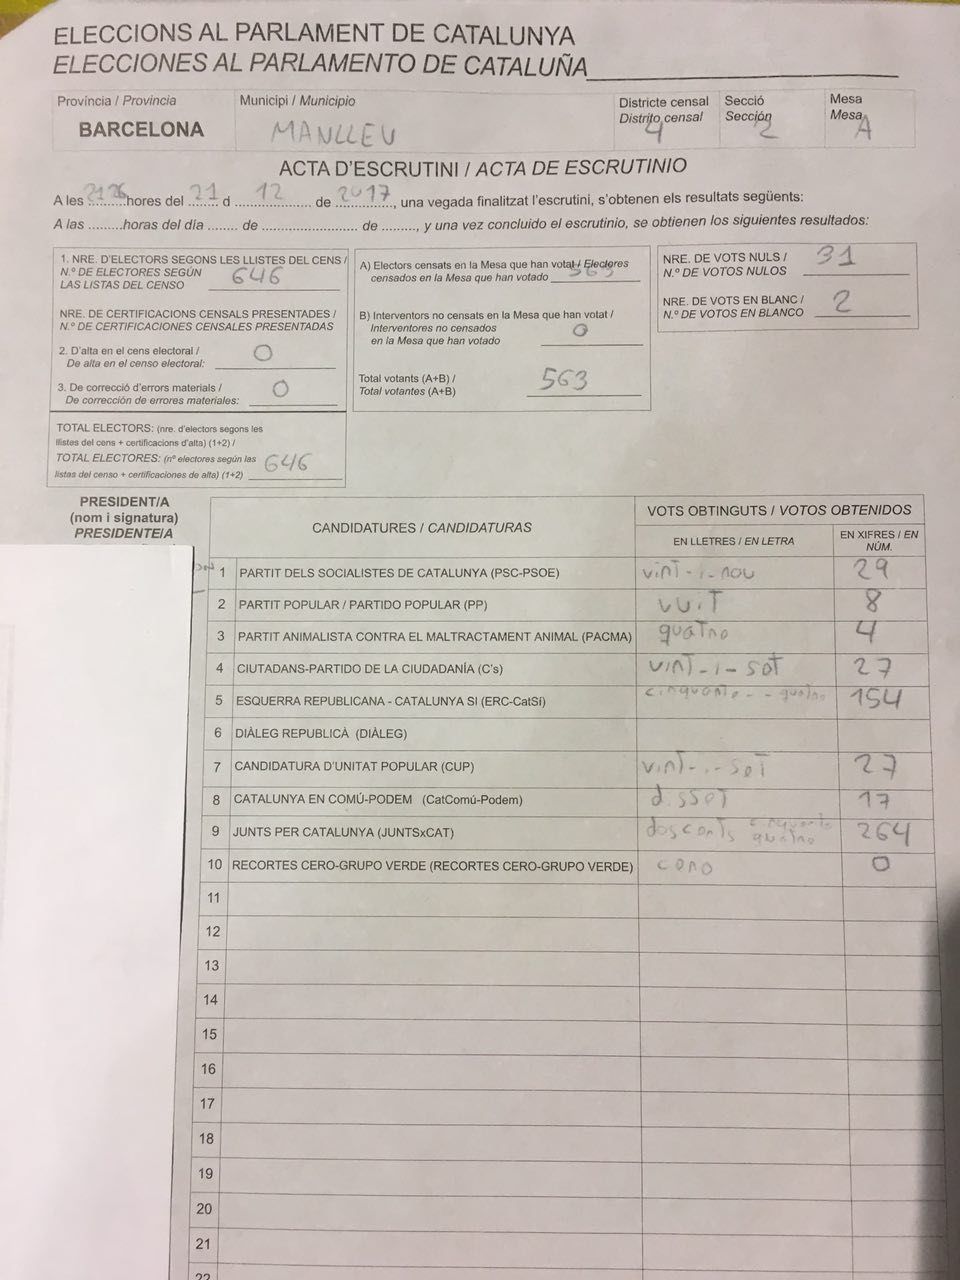 ELECCIONS AL PARLAMENT DE CATALUNYA
ELECCIONES AL PARLAMENTO DE CATALUÑA
Província / Provincia
BARCELONA
Municipi / Municipio
MANLLEU
Districte censal
Distrito censal
4
Secció
Sección
2
Mesa
Mesa
A
ACTA D'ESCRUTINI / ACTA DE ESCRUTINIO
A les ........hores del 21 d 12 de 2017, una vegada finalitzat l'escrutini, s'obtenen els resultats següents:
A las .........horas del día ........ de ........................ de ........., y una vez concluido el escrutinio, se obtienen los siguientes resultados:
1. NRE. D'ELECTORS SEGONS LES LLISTES DEL CENS /
N.º DE ELECTORES SEGÚN
LAS LISTAS DEL CENSO 646
NRE. DE CERTIFICACIONS CENSALS PRESENTADES /
N.º DE CERTIFICACIONES CENSALES PRESENTADAS
2. D'alta en el cens electoral /
De alta en el censo electoral: 0
3. De correcció d'errors materials /
De corrección de errores materiales: 0
TOTAL ELECTORS: (nre. d'electors segons les
llistes del cens + certificacions d'alta) (1+2) /
TOTAL ELECTORES: (nº electores según las
listas del censo + certificaciones de alta) (1+2) 646
A) Electors censats en la Mesa que han votat / Electores
censados en la Mesa que han votado 563
B) Interventors no censats en la Mesa que han votat /
Interventores no censados
en la Mesa que han votado 0
Total votants (A+B) /
Total votantes (A+B) 563
NRE. DE VOTS NULS /
N.º DE VOTOS NULOS 31
NRE. DE VOTS EN BLANC /
N.º DE VOTOS EN BLANCO 2
PRESIDENT/A
(nom i signatura)
PRESIDENTE/A
CANDIDATURES / CANDIDATURAS
VOTS OBTINGUTS / VOTOS OBTENIDOS
EN LLETRES / EN LETRA
EN XIFRES / EN
NÚM.
1 PARTIT DELS SOCIALISTES DE CATALUNYA (PSC-PSOE) vint-i-nou 29
2 PARTIT POPULAR / PARTIDO POPULAR (PP) vuit 8
3 PARTIT ANIMALISTA CONTRA EL MALTRACTAMENT ANIMAL (PACMA) quatre 4
4 CIUTADANS-PARTIDO DE LA CIUDADANÍA (C's) vint-i-set 27
5 ESQUERRA REPUBLICANA - CATALUNYA SI (ERC-CatSí) cinquanta - - quatre 154
6 DIÀLEG REPUBLICÀ (DIÀLEG)
7 CANDIDATURA D'UNITAT POPULAR (CUP) vint-i-set 27
8 CATALUNYA EN COMÚ-PODEM (CatComú-Podem) disset 17
9 JUNTS PER CATALUNYA (JUNTSxCAT) doscents cinquanta quatre 264
10 RECORTES CERO-GRUPO VERDE (RECORTES CERO-GRUPO VERDE) cero 0
11
12
13
14
15
16
17
18
19
20
21
22